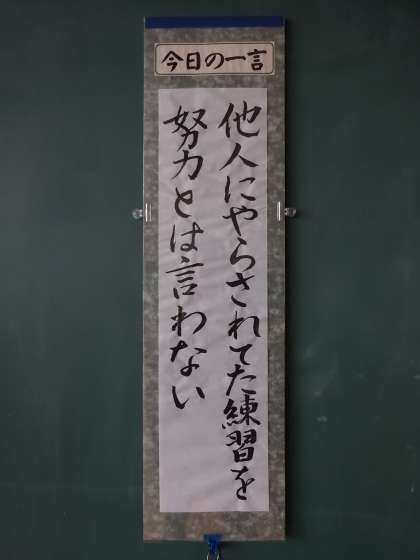 今日の一言
他人にやらされてた練習を
努力とは言わない